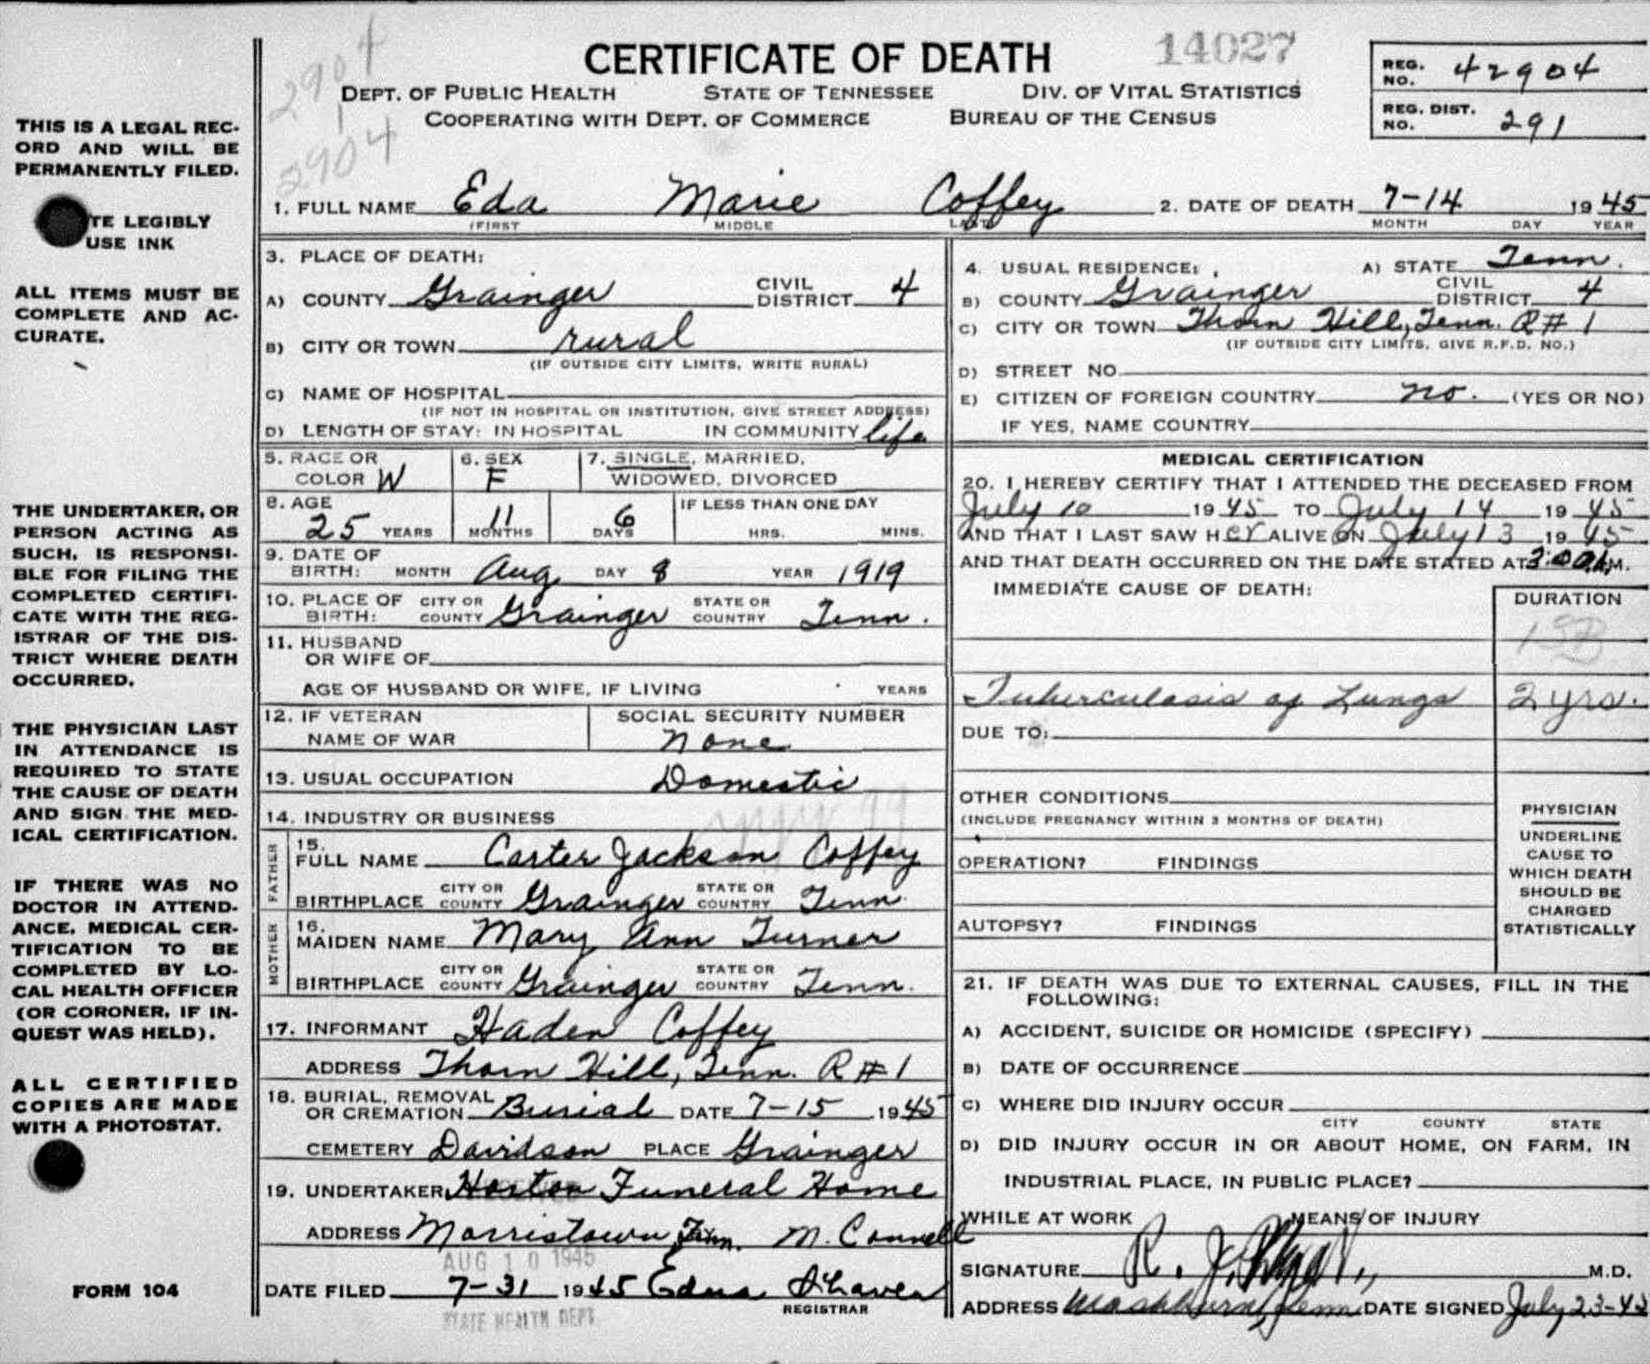 2904
14027
CERTIFICATE OF DEATH
DEPT. OF PUBLIC HEALTH STATE OF TENNESSEE DIV. OF VITAL STATISTICS
COOPERATING WITH DEPT. OF COMMERCE BUREAU OF THE CENSUS
REG. NO. 42904
REG. DIST. NO. 291
2904
THIS IS A LEGAL REC-
ORD AND WILL BE
PERMANENTLY FILED.
TE LEGIBLY
USE INK
ALL ITEMS MUST BE
COMPLETE AND AC-
CURATE.
THE UNDERTAKER, OR
PERSON ACTING AS
SUCH, IS RESPONSI-
BLE FOR FILING THE
COMPLETED CERTIFI-
CATE WITH THE REG-
ISTRAR OF THE DIS-
TRICT WHERE DEATH
OCCURRED.
THE PHYSICIAN LAST
IN ATTENDANCE IS
REQUIRED TO STATE
THE CAUSE OF DEATH
AND SIGN THE MED-
ICAL CERTIFICATION.
IF THERE WAS NO
DOCTOR IN ATTEND-
ANCE, MEDICAL CER-
TIFICATION TO BE
COMPLETED BY LO-
CAL HEALTH OFFICER
(OR CORONER, IF IN-
QUEST WAS HELD).
ALL CERTIFIED
COPIES ARE MADE
WITH A PHOTOSTAT.
FORM 104
1. FULL NAME Eda Marie Coffey 2. DATE OF DEATH 7-14 1945
(FIRST MIDDLE LAST MONTH DAY YEAR
3. PLACE OF DEATH:
A) COUNTY Grainger CIVIL DISTRICT 4
B) CITY OR TOWN rural
(IF OUTSIDE CITY LIMITS, WRITE RURAL)
C) NAME OF HOSPITAL
(IF NOT IN HOSPITAL OR INSTITUTION, GIVE STREET ADDRESS)
D) LENGTH OF STAY: IN HOSPITAL IN COMMUNITY life
4. USUAL RESIDENCE: A) STATE Tenn.
B) COUNTY Grainger CIVIL DISTRICT 4
C) CITY OR TOWN Thorn Hill, Tenn. R#1
(IF OUTSIDE CITY LIMITS, GIVE R.F.D. NO.)
D) STREET NO.
E) CITIZEN OF FOREIGN COUNTRY no. (YES OR NO)
IF YES, NAME COUNTRY
5. RACE OR COLOR W 6. SEX F 7. SINGLE, MARRIED, WIDOWED, DIVORCED
8. AGE 25 YEARS 11 MONTHS 6 DAYS IF LESS THAN ONE DAY HRS. MINS.
9. DATE OF BIRTH: MONTH Aug DAY 8 YEAR 1919
10. PLACE OF BIRTH: CITY OR COUNTY Grainger STATE OR COUNTRY Tenn.
11. HUSBAND OR WIFE OF
AGE OF HUSBAND OR WIFE, IF LIVING YEARS
12. IF VETERAN NAME OF WAR SOCIAL SECURITY NUMBER none
13. USUAL OCCUPATION Domestic
14. INDUSTRY OR BUSINESS
FATHER
15. FULL NAME Carter Jackson Coffey
BIRTHPLACE CITY OR COUNTY Grainger STATE OR COUNTRY Tenn.
MOTHER
16. MAIDEN NAME Mary Ann Turner
BIRTHPLACE CITY OR COUNTY Grainger STATE OR COUNTRY Tenn.
17. INFORMANT Haden Coffey
ADDRESS Thorn Hill, Tenn. R#1
18. BURIAL, REMOVAL OR CREMATION Burial DATE 7-15 1945
CEMETERY Davidson PLACE Grainger
19. UNDERTAKER Horton Funeral Home
ADDRESS Morristown, Tenn. M. Connell
AUG 10 1945
DATE FILED 7-31 1945 Edna
REGISTRAR
STATE HEALTH DEPT
MEDICAL CERTIFICATION
20. I HEREBY CERTIFY THAT I ATTENDED THE DECEASED FROM
July 10 1945 TO July 14 1945
AND THAT I LAST SAW HER ALIVE ON July 13 1945
AND THAT DEATH OCCURRED ON THE DATE STATED AT 3:00 A.M.
IMMEDIATE CAUSE OF DEATH: DURATION
Tuberculosis of Lungs 2 yrs.
DUE TO:
OTHER CONDITIONS
(INCLUDE PREGNANCY WITHIN 3 MONTHS OF DEATH)
OPERATION? FINDINGS
AUTOPSY? FINDINGS
PHYSICIAN
UNDERLINE
CAUSE TO
WHICH DEATH
SHOULD BE
CHARGED
STATISTICALLY
21. IF DEATH WAS DUE TO EXTERNAL CAUSES, FILL IN THE
FOLLOWING:
A) ACCIDENT, SUICIDE OR HOMICIDE (SPECIFY)
B) DATE OF OCCURRENCE
C) WHERE DID INJURY OCCUR
CITY COUNTY STATE
D) DID INJURY OCCUR IN OR ABOUT HOME, ON FARM, IN
INDUSTRIAL PLACE, IN PUBLIC PLACE?
WHILE AT WORK MEANS OF INJURY
SIGNATURE R. J. M.D.
ADDRESS Washburn, Tenn DATE SIGNED July 23-45